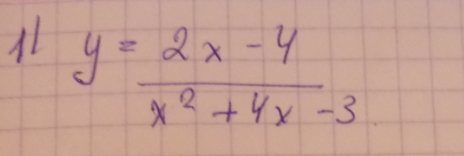 11 y = 2x - 4
x² + 4x - 3